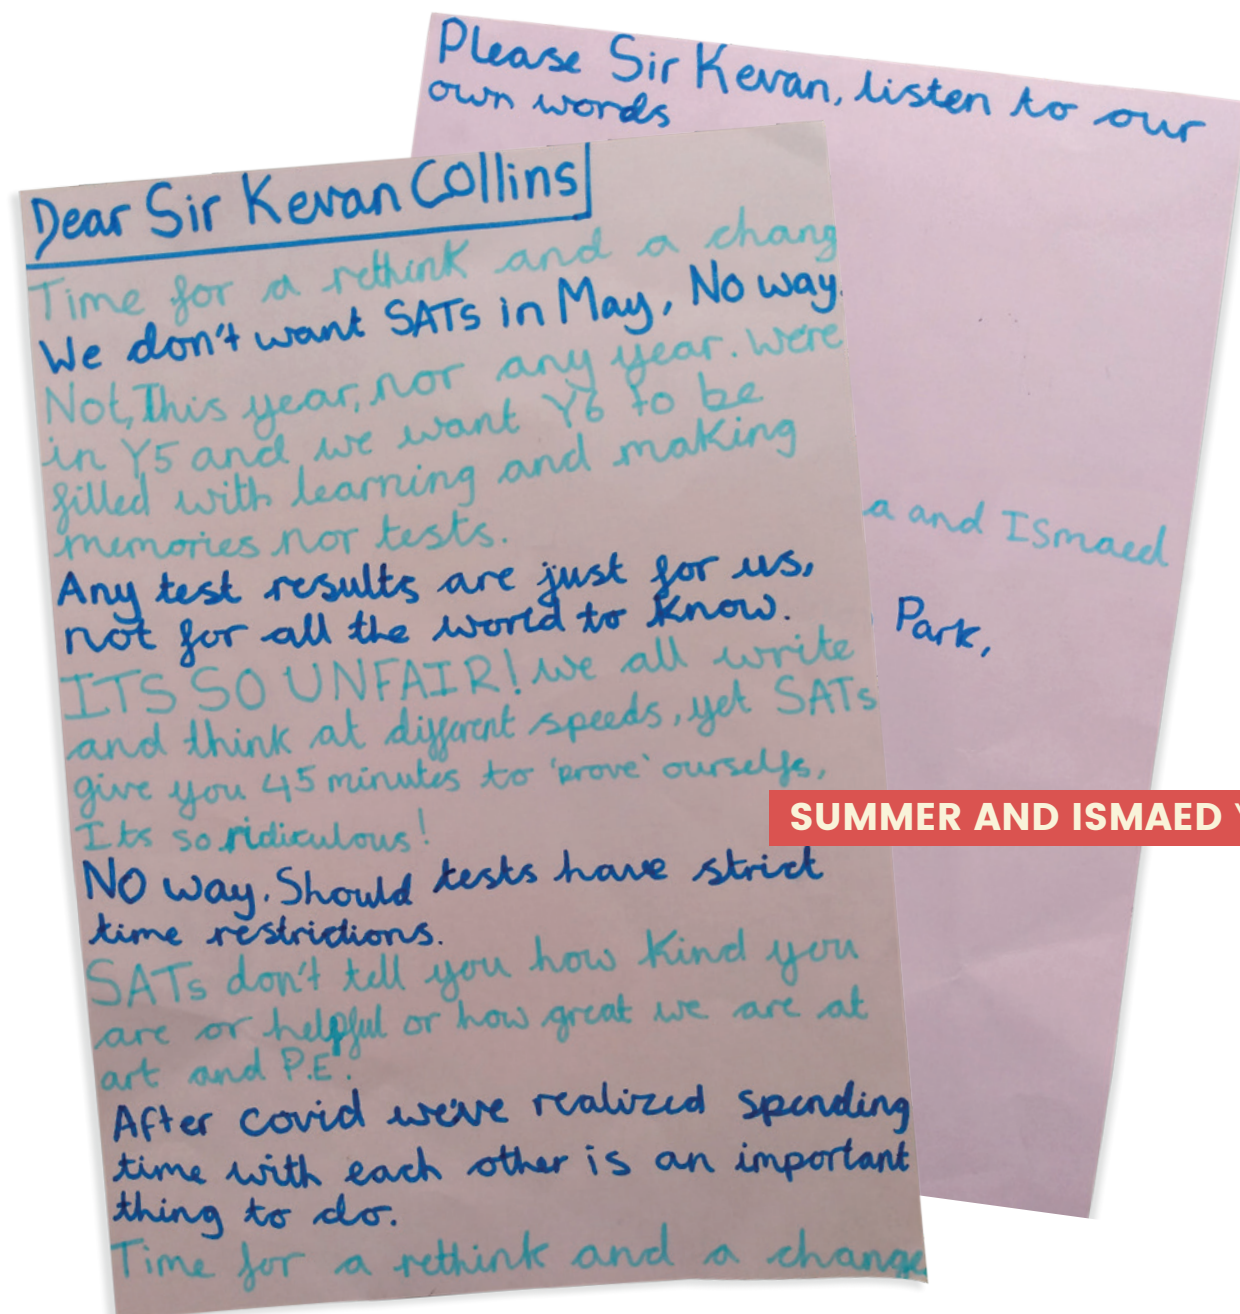 Please Sir Kevan, listen to our
own words
Dear Sir Kevan Collins
Time for a rethink and a chang
We don't want SATs in May, No way.
Not, This year, nor any year. We're
in Y5 and we want Y6 to be
filled with learning and making
memories nor tests.
Any test results are just for us,
not for all the world to know.
ITS SO UNFAIR! We all write
and think at different speeds, yet SATs
give you 45 minutes to 'prove' ourselfs,
Its so ridiculous!
NO way. Should tests have strict
time restrictions.
SATs don't tell you how kind you
are or helpful or how great we are at
art and P.E.
After covid we've realized spending
time with each other is an important
thing to do.
Time for a rethink and a change
a and ISmaed
Park,
SUMMER AND ISMAED